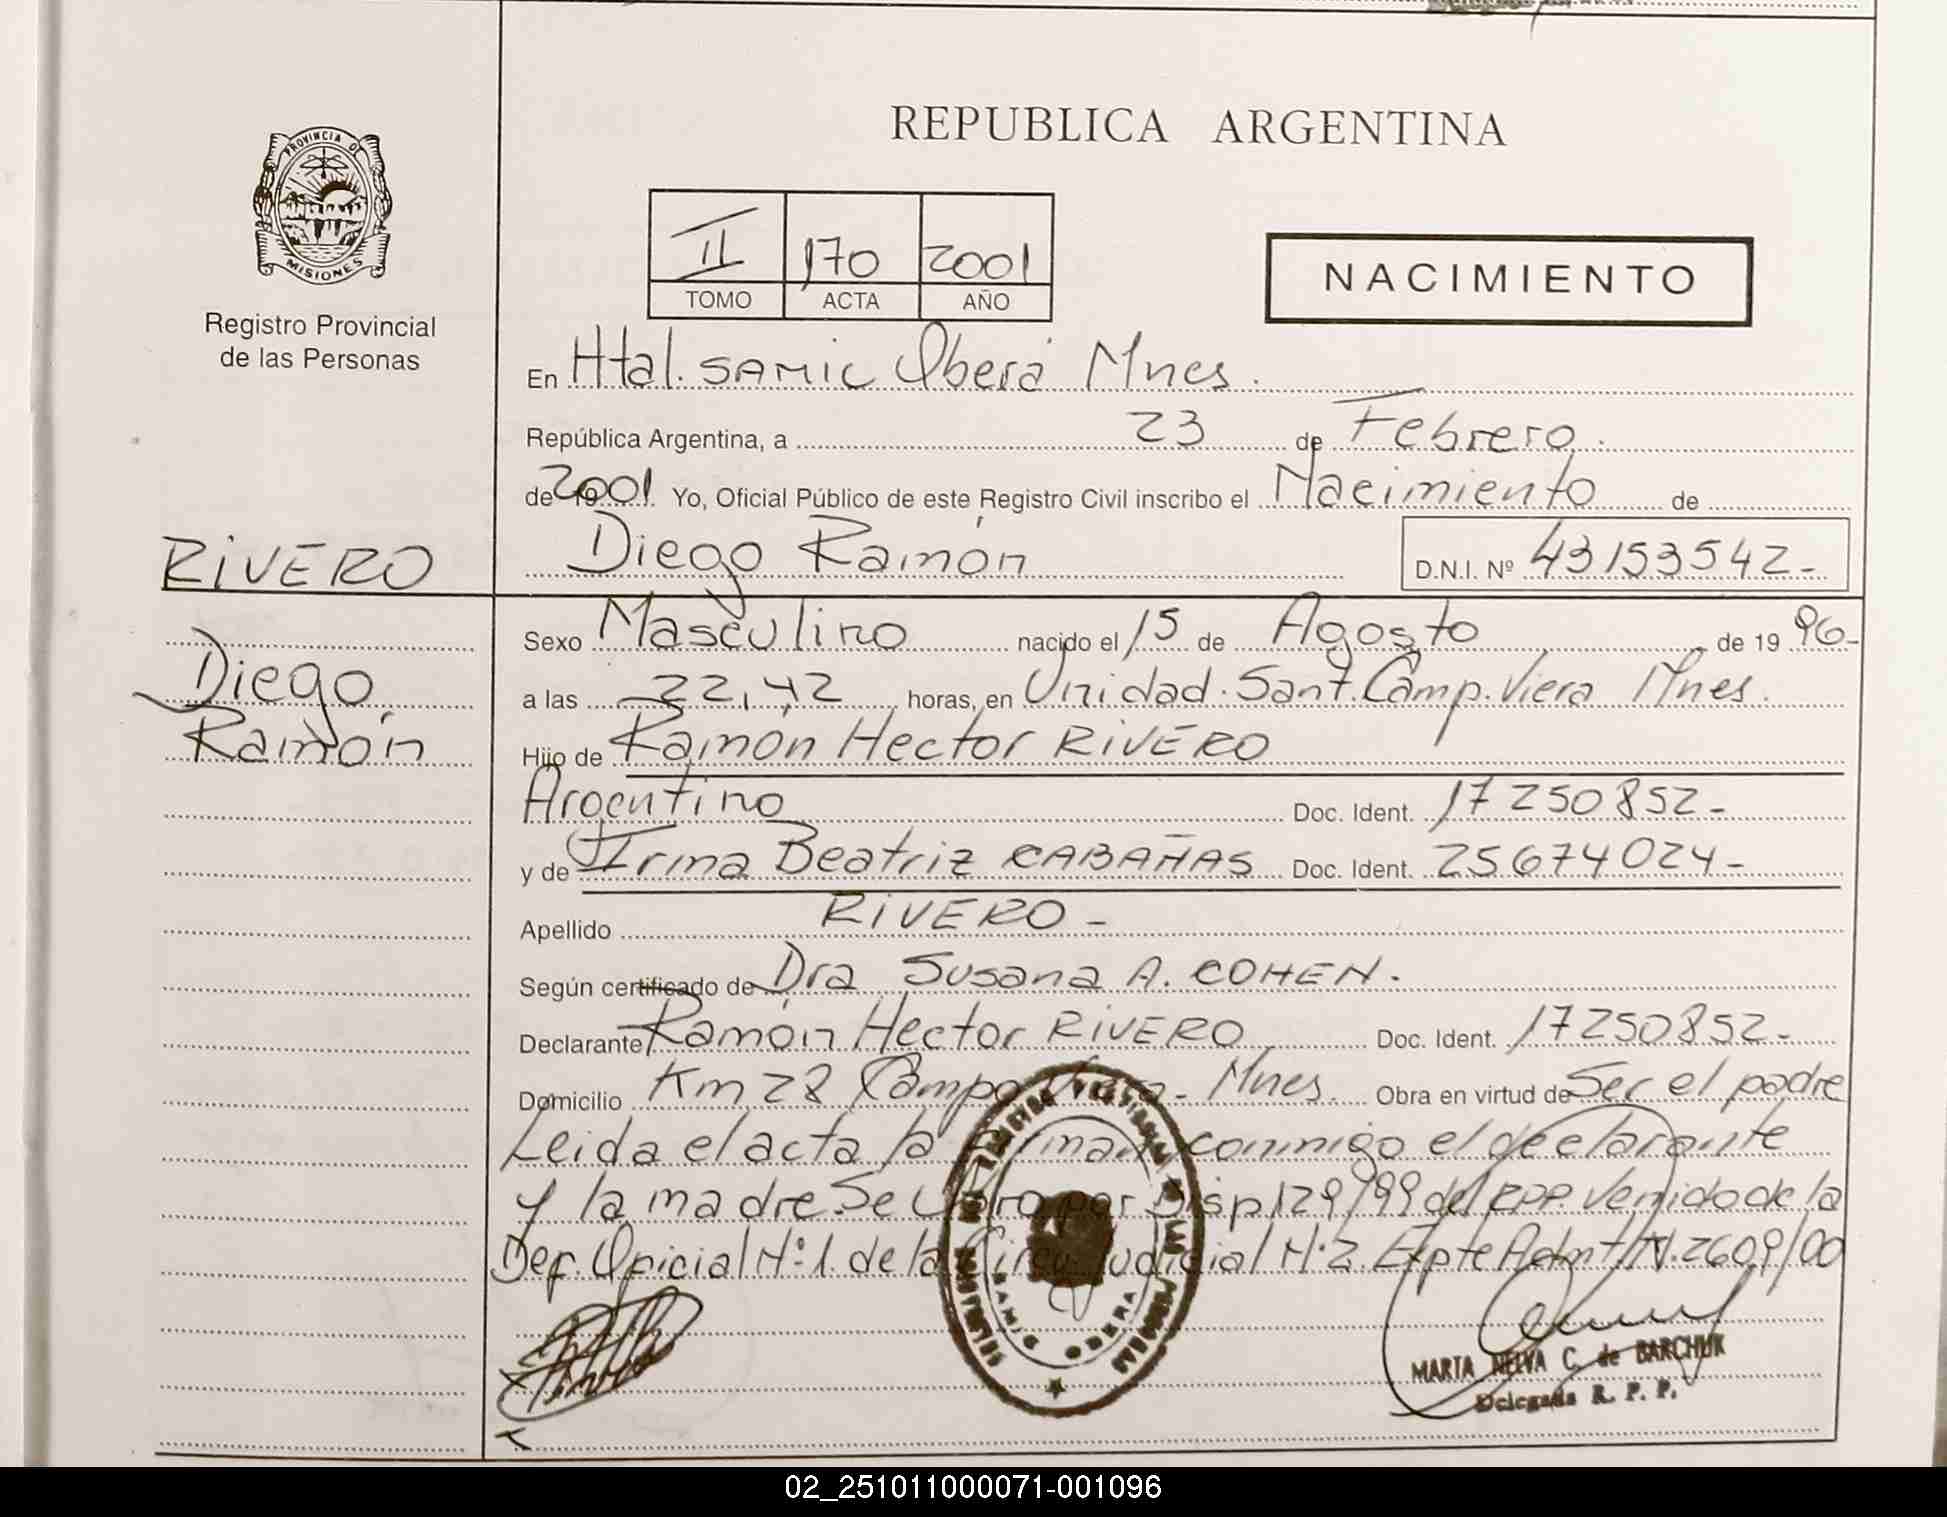 PROVINCIA DE
MISIONES
Registro Provincial
de las Personas
REPUBLICA ARGENTINA
II 170 2001
TOMO ACTA AÑO
NACIMIENTO
En Htal. SAMIC Oberá Mnes.
República Argentina, a 23 de Febrero
de 2001 Yo, Oficial Público de este Registro Civil inscribo el Nacimiento de
Diego Ramón D.N.I. Nº 43153542-
RIVERO
Diego
Ramón
Sexo Masculino nacido el 15 de Agosto de 19 96-
a las 22,42 horas, en Unidad. Sant. Camp. Viera Mnes.
Hijo de Ramón Hector RIVERO
Argentino Doc. Ident. 17250852-
y de Irma Beatriz CABAÑAS Doc. Ident. 25674024-
Apellido RIVERO-
Según certificado de Dra Susana A. COHEN.
Declarante Ramón Hector RIVERO Doc. Ident. 17250852-
Domicilio Km 28 Campo Viera- Mnes. Obra en virtud de Ser el padre
Leida el acta la firman conmigo el declarante
y la madre. Se labro por Disp 129/99 del RPP. Venido de la
Def. Oficial N:1. de la Circ. Judicial N:2. Expte Admt. N. 2609/00
SAMIC OBERA
MARTA NELVA C. de BARCHUK
Delegada R. P. P.
02_251011000071-001096